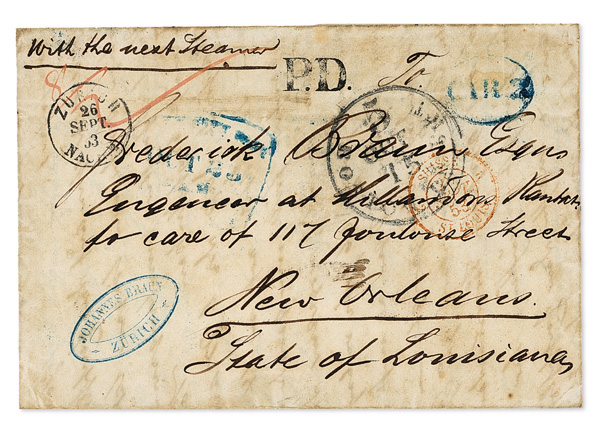 With the next Steamer
P.D.
To
ZÜRICH
26
SEPT.
53
NACH
Frederick Braun Esqre
Engeneer at Williamons Plantat.
to care of 117 Joulouse Street
New Orleans.
State of Louisiana
JOHANNES BRAUN
ZÜRICH